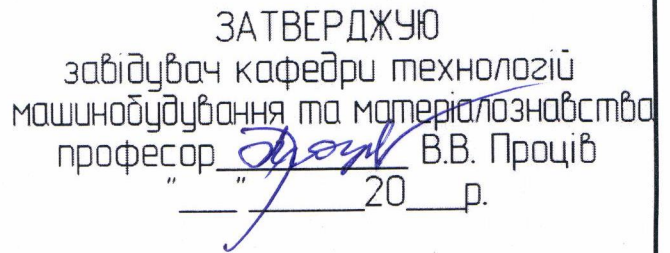 ЗАТВЕРДЖУЮ
завідувач кафедри технологій
машинобудування та матеріалознавства
професор__________ В.В. Проців
"____" ________20___р.